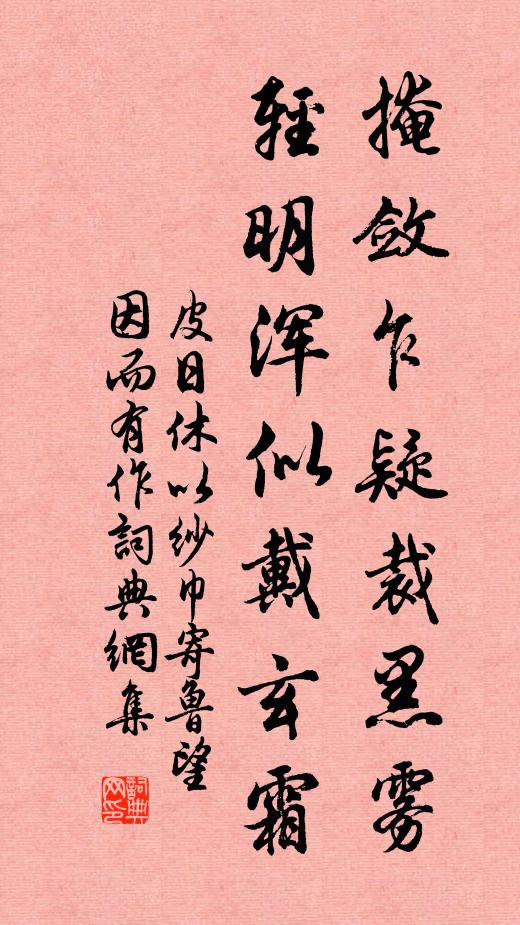 掩斂乍疑裁黑雾
輕明浑似戴玄霜
皮日休以紗巾寄魯望
因而有作詞典網集
詞典
网印